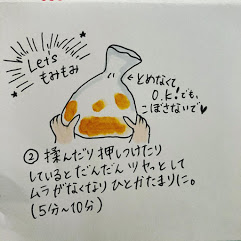 Let's
もみもみ
とめなくて
O.K!でも、
こぼさないで♥
② 揉んだり 押しつけたり
していると だんだん ツヤっとして
ムラが なくなり ひとかたまりに。
(5分~10分)